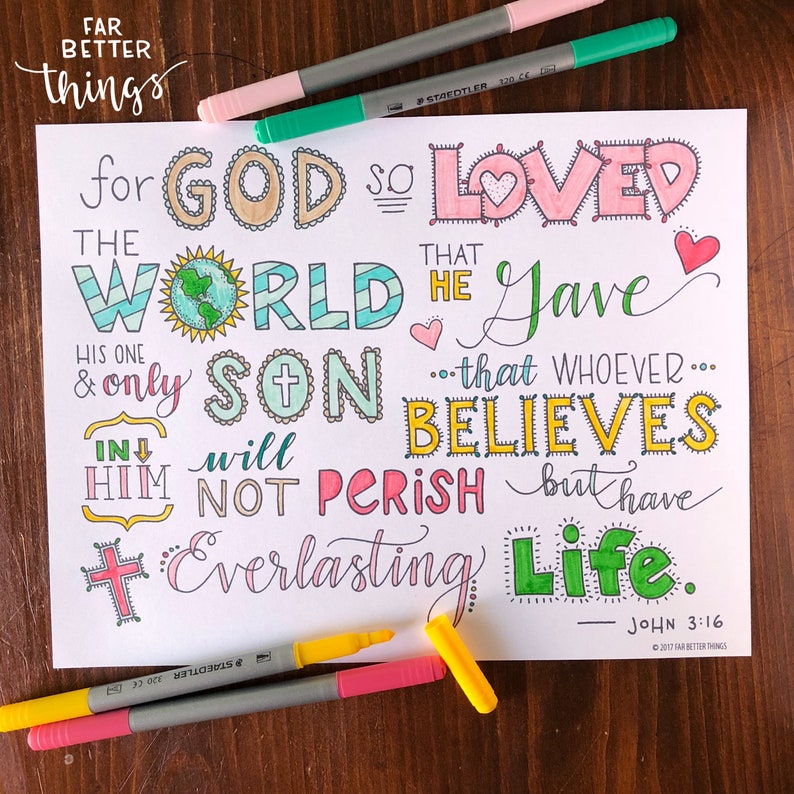 FAR
BETTER
things
STAEDTLER 320 CE
for GOD so LOVED
THE
WORLD
THAT
HE Gave
HIS ONE
& only SON
that WHOEVER
BELIEVES
IN
HIM
will
NOT PERISH
but have
Everlasting Life.
— JOHN 3:16
© 2017 FAR BETTER THINGS
STAEDTLER
320 CE
STAEDTLER
320 CE